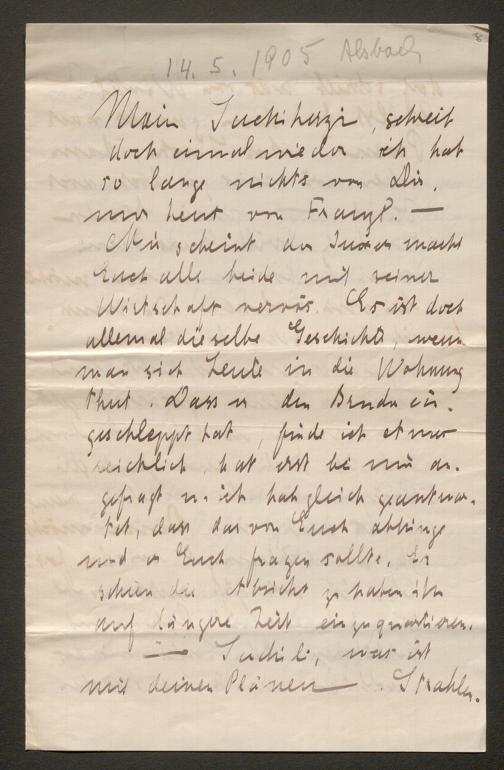 14. 5. 1905 Alsbach
Mein Suchiherzi, schreib
doch einmal wieder ich hab
so lange nichts von Dir,
nur heut von Franzl. —
Mir scheint der macht
Euch alle beide mit seiner
Wirtschaft nervös. Es ist doch
allemal dieselbe Geschichte, wenn
man sich Leute in die Wohnung
thut. Dass er den Bruder ein-
geschleppt hat, finde ich etwas
reichlich hat erst bei mir an-
gefragt u. ich hab gleich geantwor-
tet, dass das von Euch abhinge
und er Euch fragen sollte. Er
schien die Absicht zu haben ihn
auf längere Zeit einzuquartieren.
— Suchili, was ist
mit deinen Plänen —. Strahlen-